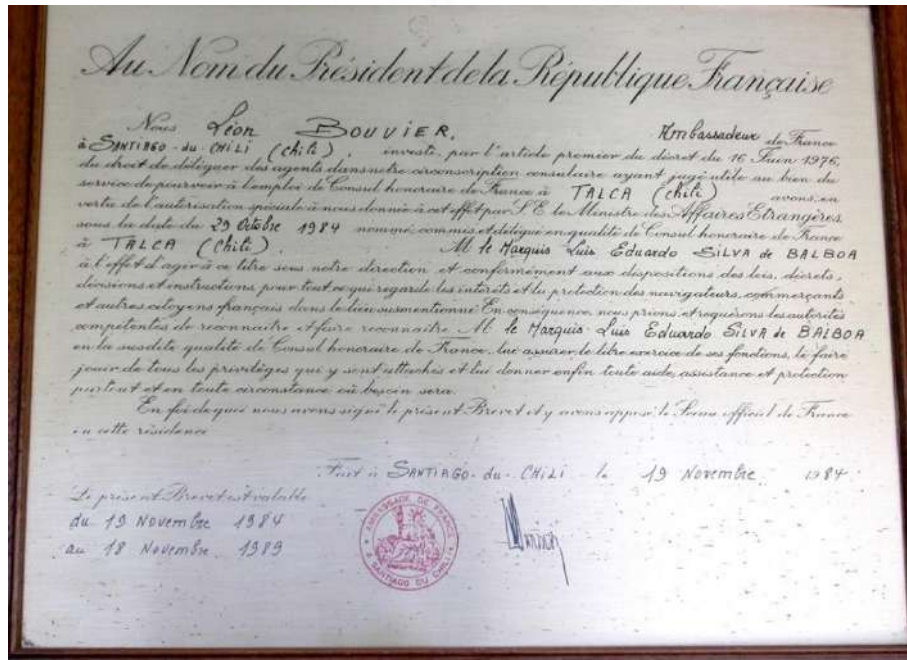 Au Nom du Président de la République Française
Nous Léon BOUVIER, Ambassadeur de France
à SANTIAGO-du-CHILI (Chili), investi, par l'article premier du décret du 16 Juin 1976,
du droit de déléguer des agents dans notre circonscription consulaire ayant jugé utile au bien du
service de pourvoir à l'emploi de Consul honoraire de France à TALCA (Chili) avons, en
vertu de l'autorisation spéciale à nous donnée à cet effet par S.E. le Ministre des Affaires Etrangères,
sous la date du 29 Octobre 1984 nommé commis et délégué en qualité de Consul honoraire de France
à TALCA (Chili) M. le Marquis Luis Eduardo SILVA de BALBOA
à l'effet d'agir à ce titre sous notre direction et conformément aux dispositions des lois, décrets,
décisions et instructions, pour tout ce qui regarde les intérêts et la protection des navigateurs, commerçants
et autres citoyens français dans le lieu susmentionné. En conséquence, nous prions et requérons les autorités
compétentes de reconnaître et faire reconnaître M. le Marquis Luis Eduardo SILVA de BALBOA
en la susdite qualité de Consul honoraire de France, lui assurer le libre exercice de ses fonctions, le faire
jouir de tous les privilèges qui y sont attachés et lui donner enfin toute aide, assistance et protection
partout et en toute circonstance où besoin sera.
En foi de quoi nous avons signé le présent Brevet et y avons apposé le Sceau officiel de France
en cette résidence
Fait à SANTIAGO-du-CHILI le 19 Novembre 1984
Le présent Brevet est valable
du 19 Novembre 1984
au 18 Novembre 1989
AMBASSADE DE FRANCE
A SANTIAGO DU CHILI